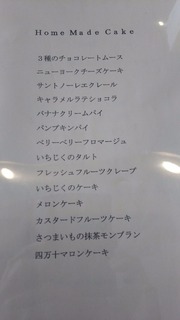 Home Made Cake
３種のチョコレートムース
ニューヨークチーズケーキ
サントノーレエクレール
キャラメルラテショコラ
バナナクリームパイ
パンプキンパイ
ベリーベリーフロマージュ
いちじくのタルト
フレッシュフルーツクレープ
いちじくのケーキ
メロンケーキ
カスタードフルーツケーキ
さつまいもの抹茶モンブラン
四万十マロンケーキ